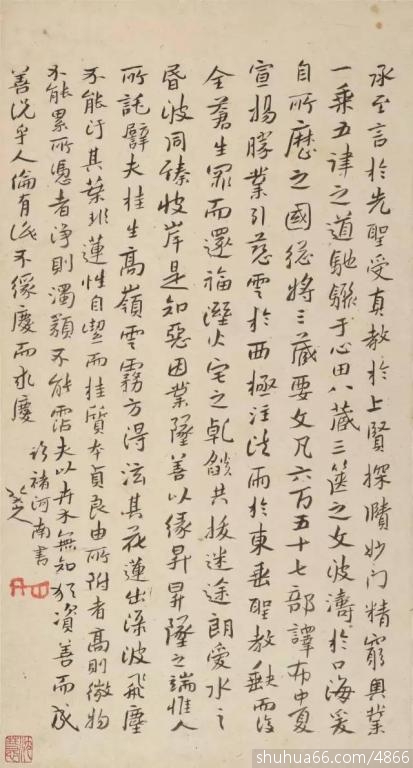 承至言於先聖受真教於上賢探賾妙门精窮奧業
一乘五律之道馳驟于心田八藏三箧之文波濤於口海爰
自所歷之國總將三藏要文凡六百五十七部譯布中夏
宣揚勝業引慈雲於西極注法雨於東垂聖教缺而復
全蒼生罪而還福溼火宅之乾燄共拔迷途朗愛水之
昏波同臻彼岸是知惡因業墜善以緣昇昇墜之端惟人
所託譬夫桂生高嶺雲霧方得泫其花蓮出淥波飛塵
不能汙其葉非蓮性自潔而桂質本貞良由所附者高則微物
不能累所憑者淨則濁類不能霑夫以卉木無知猶資善而成
善況乎人倫有识不緣慶而求慶
臨褚河南書
八大山人
shuhua66.com/4866